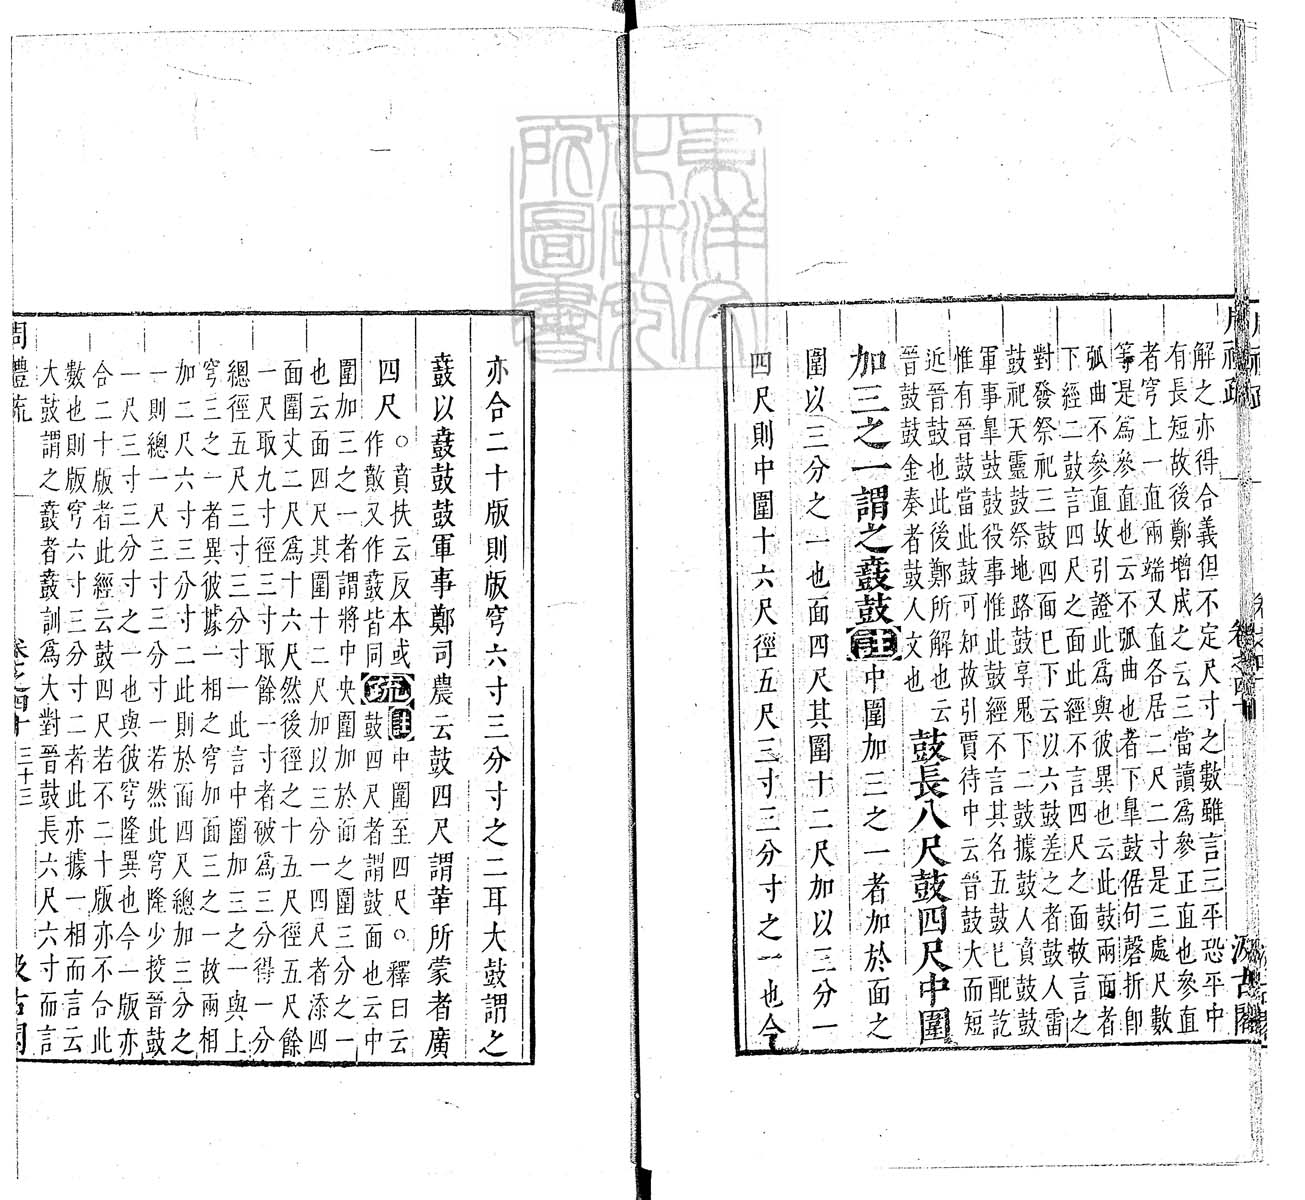 解之亦得合義但不定尺寸之數雖言三平恐平中
有長短故後鄭增成之云三當讀爲參正直也參直
者穹上一直兩端又直各居二尺二寸是三處尺數
等是爲參直也云不弧曲也者下臯鼓倨句磬折卽
弧曲不參直故引證此爲與彼異也云此鼓兩面者
下經二鼓言四尺之面此經不言四尺之面故言之
對發祭祀三鼓四面巳下云以六鼓差之者鼓人雷
鼓祀天靈鼓祭地路鼓享鬼下二鼓據鼓人賁鼓鼓
軍事臯鼓鼓役事惟此鼓經不言其名五鼓巳配訖
惟有晉鼓當此鼓可知故引賈待中云晉鼓大而短
近晉鼓也此後鄭所解也云
晉鼓鼓金奏者鼓人文也
鼓長八尺鼓四尺中圍
加三之一謂之鼖鼓註中圍加三之一者加於面之
圍以三分之一也面四尺其圍十二尺加以三分一
四尺則中圍十六尺徑五尺三寸三分寸之一也今
亦合二十版則版穹六寸三分寸之二耳大鼓謂之
鼖以鼖鼓鼓軍事鄭司農云鼓四尺謂革所蒙者廣
四尺
○賁扶云反本或
作鼖又作鼖皆同
疏註中圍至四尺○釋曰云
鼓四尺者謂鼓面也云中
圍加三之一者謂將中央圍加於面之圍三分之一
也云面四尺其圍十二尺加以三分一四尺者添四
面圍丈二尺爲十六尺然後徑之十五尺徑五尺餘
一尺取九寸徑三寸取餘一寸者破爲三分得一分
總徑五尺三寸三分寸一此言中圍加三之一與上
穹三之一者異彼據一相之穹加面三之一故兩相
加二尺六寸三分寸二此則於面四尺總加三分之
一則總一尺三寸三分寸一若然此穹隆少挍晉鼓
一尺三寸三分寸之一也與彼穹隆異也今一版亦
合二十版者此經云鼓四尺若不二十版亦不合此
數也則版穹六寸三分寸二者此亦據一相而言云
大鼓謂之鼖者鼖訓爲大對晉鼓長六尺六寸而言
周禮疏 卷之四十 三十三 汲古閣
東洋文化研究所圖書